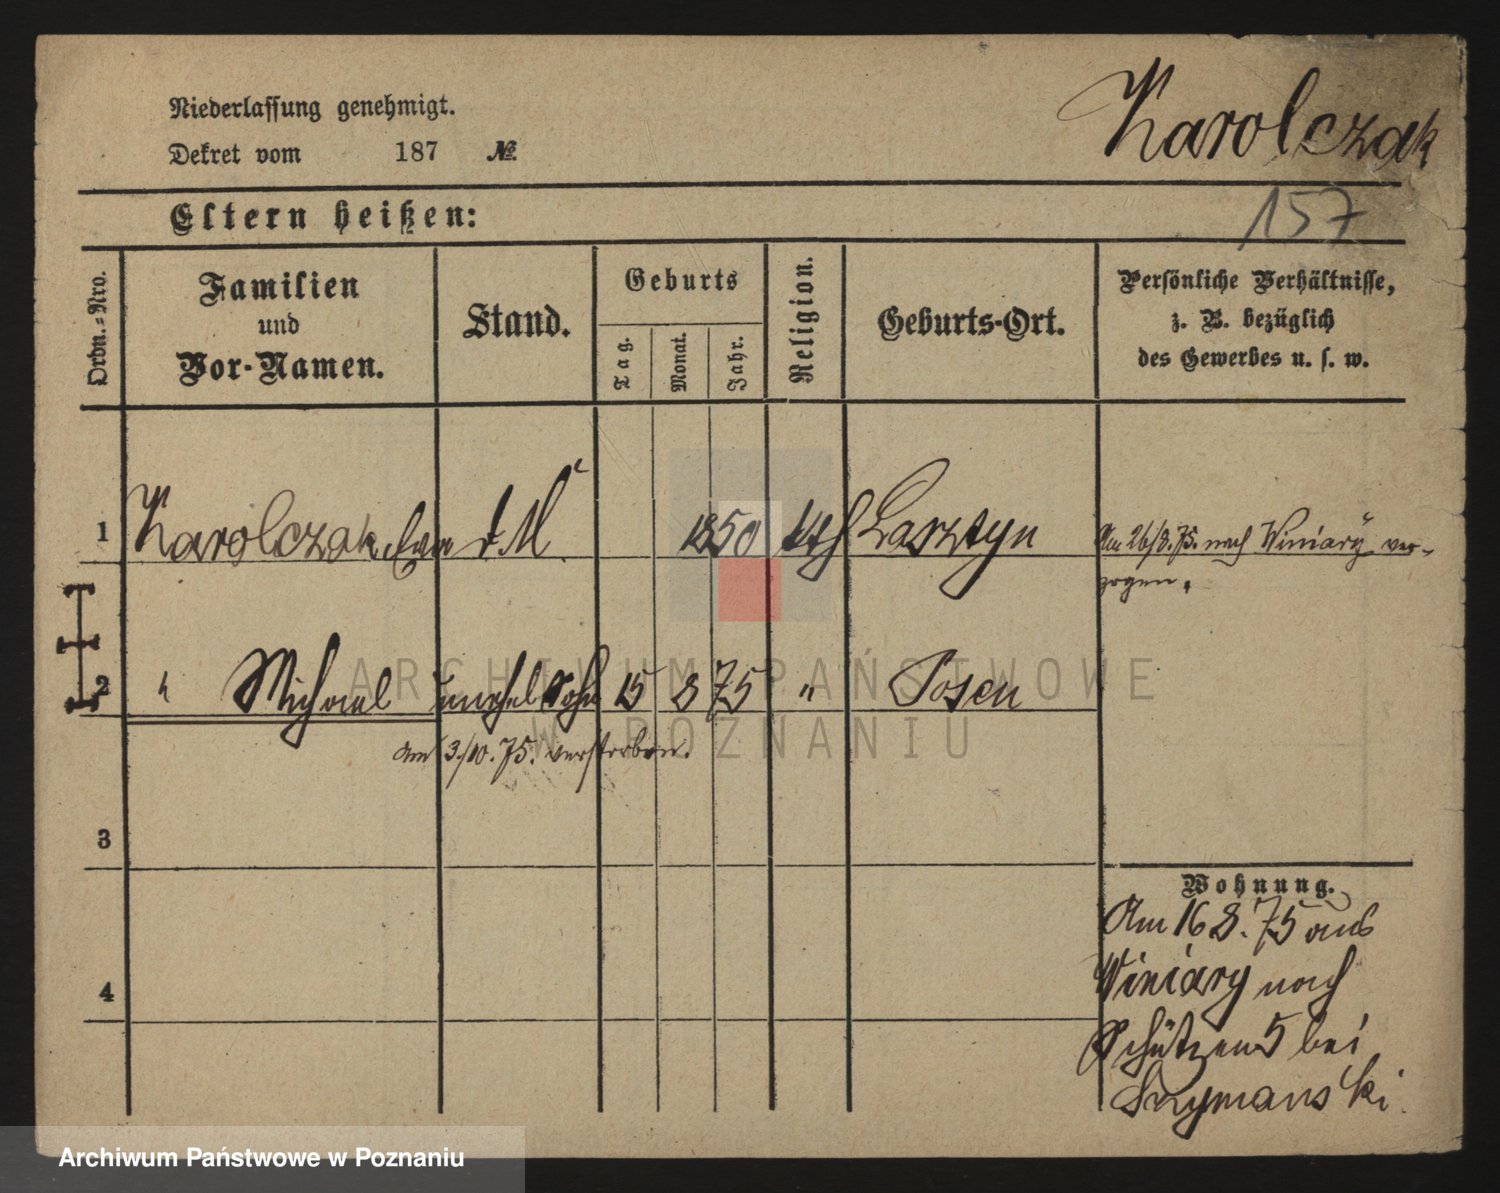 Niederlassung genehmigt.
Dekret vom 187 №
Karolczak
157
Eltern heißen:
Ordn.-Nro.
Familien und Vor-Namen.
Stand.
Geburts
Tag.
Monat.
Jahr.
Religion.
Geburts-Ort.
Persönliche Verhältnisse,
z. B. bezüglich
des Gewerbes u. s. w.
1 Karolczak Eva d. M. 1850 kth Lasztyn
Am 26/8.75. nach Winiary ver-
zogen.
2 " Michael unehel Sohn 15 8 75 " Posen
am 3./10.75. verstorben.
3
4
Wohnung.
Am 16 8.75 aus
Winiary nach
Schützen 5 bei
Szymanski.
ARCHIWUM PAŃSTWOWE
W POZNANIU
Archiwum Państwowe w Poznaniu